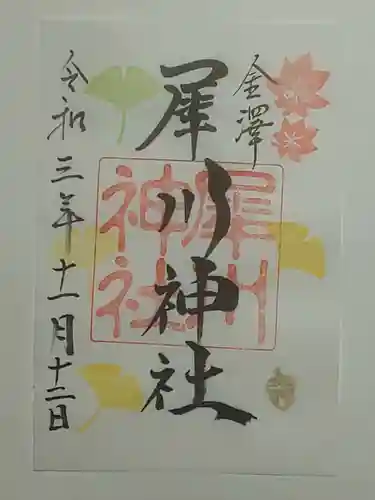 金澤
犀川神社
犀川
神社
令和三年十一月十二日